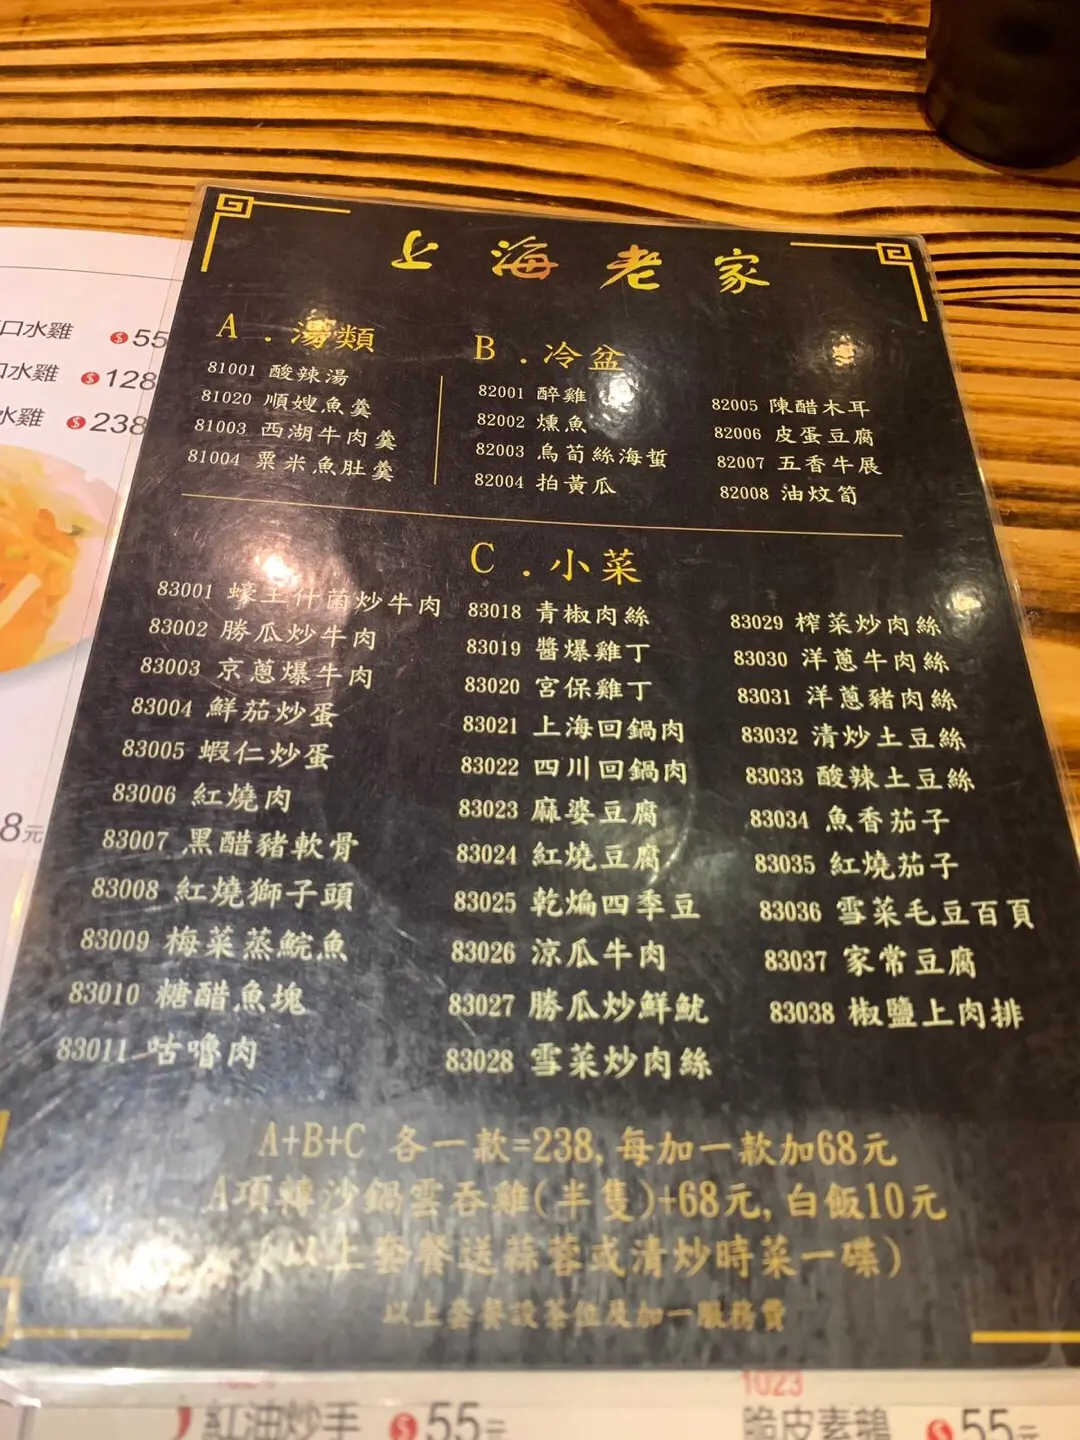 上海老家
A．湯類
81001 酸辣湯
81020 順嫂魚羹
81003 西湖牛肉羹
81004 粟米魚肚羹
B．冷盆
82001 醉雞
82002 燻魚
82003 烏筍絲海蜇
82004 拍黃瓜
82005 陳醋木耳
82006 皮蛋豆腐
82007 五香牛展
82008 油炆筍
C．小菜
83001 蠔王什菌炒牛肉
83002 勝瓜炒牛肉
83003 京蔥爆牛肉
83004 鮮茄炒蛋
83005 蝦仁炒蛋
83006 紅燒肉
83007 黑醋豬軟骨
83008 紅燒獅子頭
83009 梅菜蒸鯇魚
83010 糖醋魚塊
83011 咕嚕肉
83018 青椒肉絲
83019 醬爆雞丁
83020 宮保雞丁
83021 上海回鍋肉
83022 四川回鍋肉
83023 麻婆豆腐
83024 紅燒豆腐
83025 乾煸四季豆
83026 涼瓜牛肉
83027 勝瓜炒鮮魷
83028 雪菜炒肉絲
83029 榨菜炒肉絲
83030 洋蔥牛肉絲
83031 洋蔥豬肉絲
83032 清炒土豆絲
83033 酸辣土豆絲
83034 魚香茄子
83035 紅燒茄子
83036 雪菜毛豆百頁
83037 家常豆腐
83038 椒鹽上肉排
A+B+C 各一款=238, 每加一款加68元
A項轉沙鍋雲吞雞(半隻)+68元, 白飯10元
(以上套餐送蒜蓉或清炒時菜一碟)
以上套餐設茶位及加一服務費
口水雞 $55
口水雞 $128
水雞 $238
8元
紅油炒手 $55元
1023
脆皮素鵝 $55元